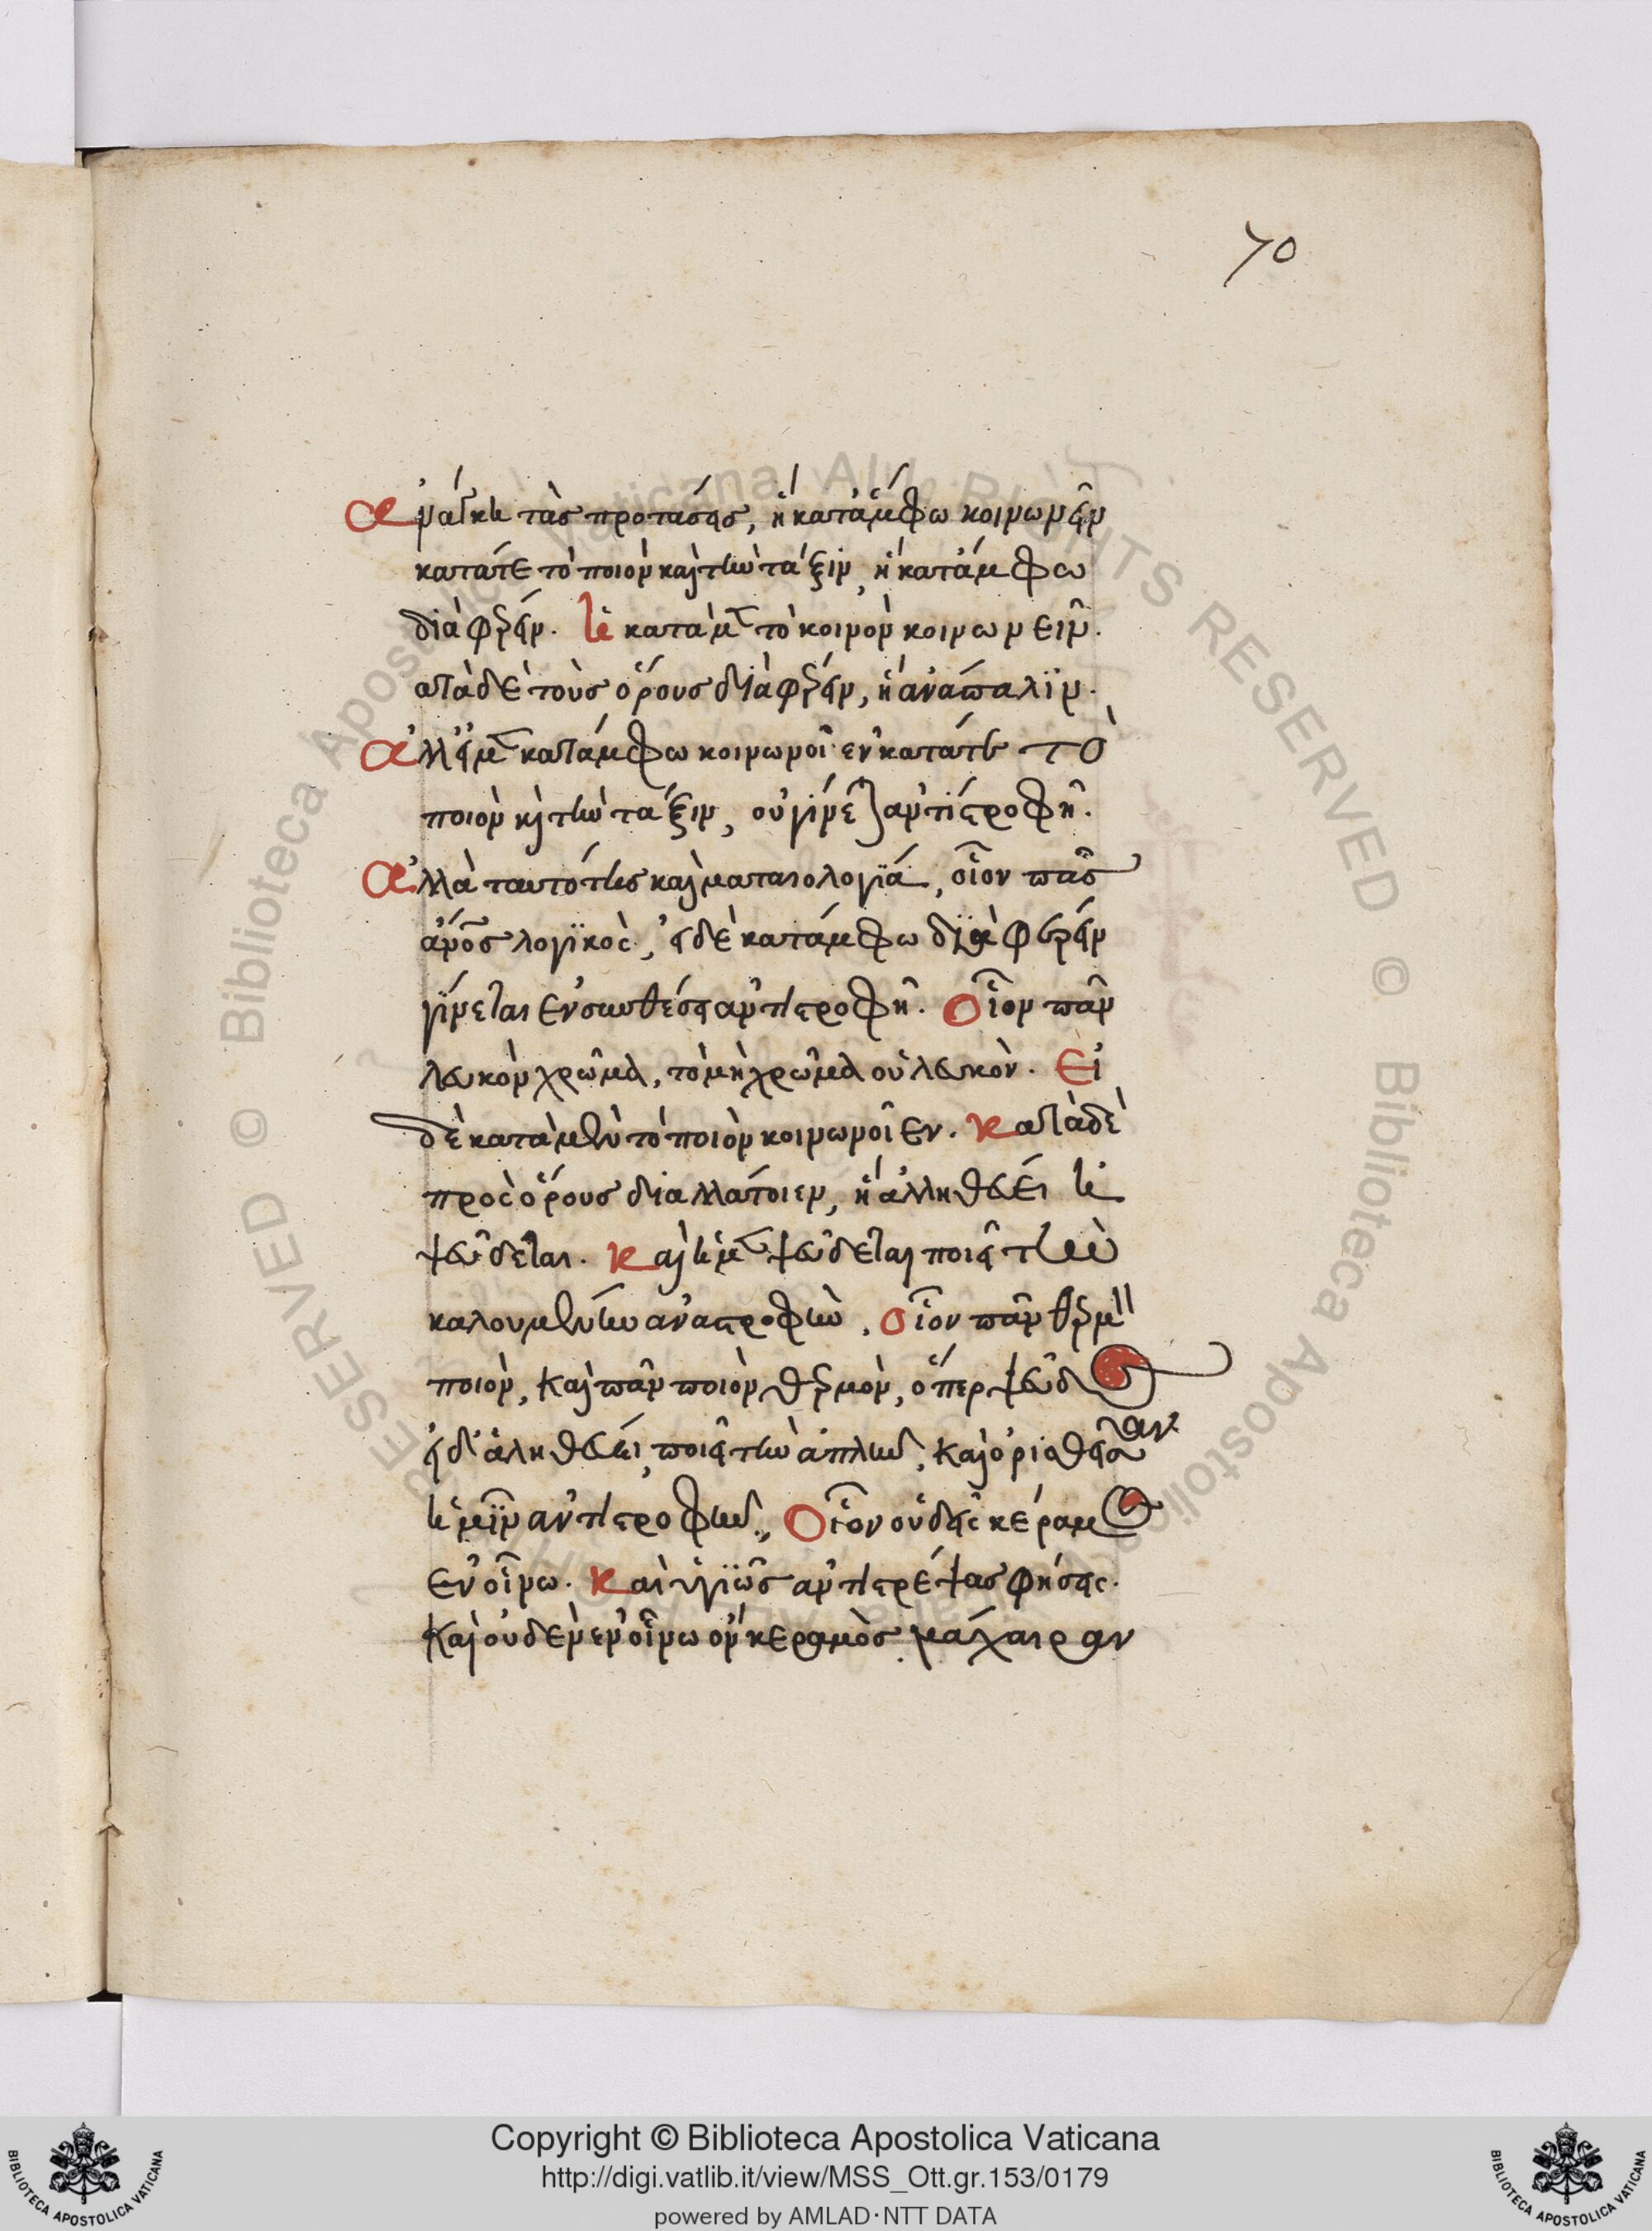 70
ἀνάγκη τὰς προτάσεις, ἢ κατάμφω κοινωνεῖν
κατάτε τὸ ποιὸν καὶ τὴν τάξιν, ἢ κατάμφω
διὰφέρειν. ἢ κατὰ μὲν τὸ κοινὸν κοινωνεῖν.
κατὰ δὲ τοὺς ὅρους διὰφέρειν, ἢ ἀνάπαλϊν.
Ἀλλ' εἰ μὲν κατάμφω κοινωνοῖεν κατάτε τὸ
ποιὸν καὶ τὴν τάξιν, οὐ γίνεται ἀντιστροφὴ.
Ἀλλὰ ταυτότης καὶ ματαιολογΐα, οἷον πᾶς
ἄνος λογϊκὸς, εἰ δὲ κατάμφω δϊὰφέρειν
γίνεται ἐν συνθέσει ἀντιστροφὴ. Οἷον πᾶν
λευκὸν χρῶμα, τὸ μὴ χρῶμα οὐ λευκὸν. Εἰ
δὲ κατὰ μὲν τὸ ποιὸν κοινωνοῖεν. Κατὰ δὲ
πρὸς ὅρους διαλλάτοιεν, ἢ ἀλληθεύει ἢ
ψεύδεται. Καὶ ἢ μὲν ψεύδεται ποιεῖ τὴν
καλουμένην ἀναστροφὴν, οἷον πᾶν θερμὸν
ποιὸν, καὶ πᾶν ποιὸν θερμὸν, ὅπερ ψεῦδος
εἰ δ' ἀληθεύει, ποιεῖ τὴν ἁπλῆν, καὶ ὁρισθεῖσαν
ἡμῖν ἀντιστροφήν., Οἷον οὐδεὶς κέραμος
ἐν οἴνω. Καὶ ὑγϊῶς ἀντιστρέψας φήσεις.
καὶ οὐδὲν ἐν οἴνω ὂν κεραμὸς. μάχαιραν
Copyright © Biblioteca Apostolica Vaticana
http://digi.vatlib.it/view/MSS_Ott.gr.153/0179
powered by AMLAD·NTT DATA
BIBLIOTECA APOSTOLICA VATICANA
BIBLIOTECA APOSTOLICA VATICANA
© Biblioteca Apostolica Vaticana ALL RIGHTS RESERVED